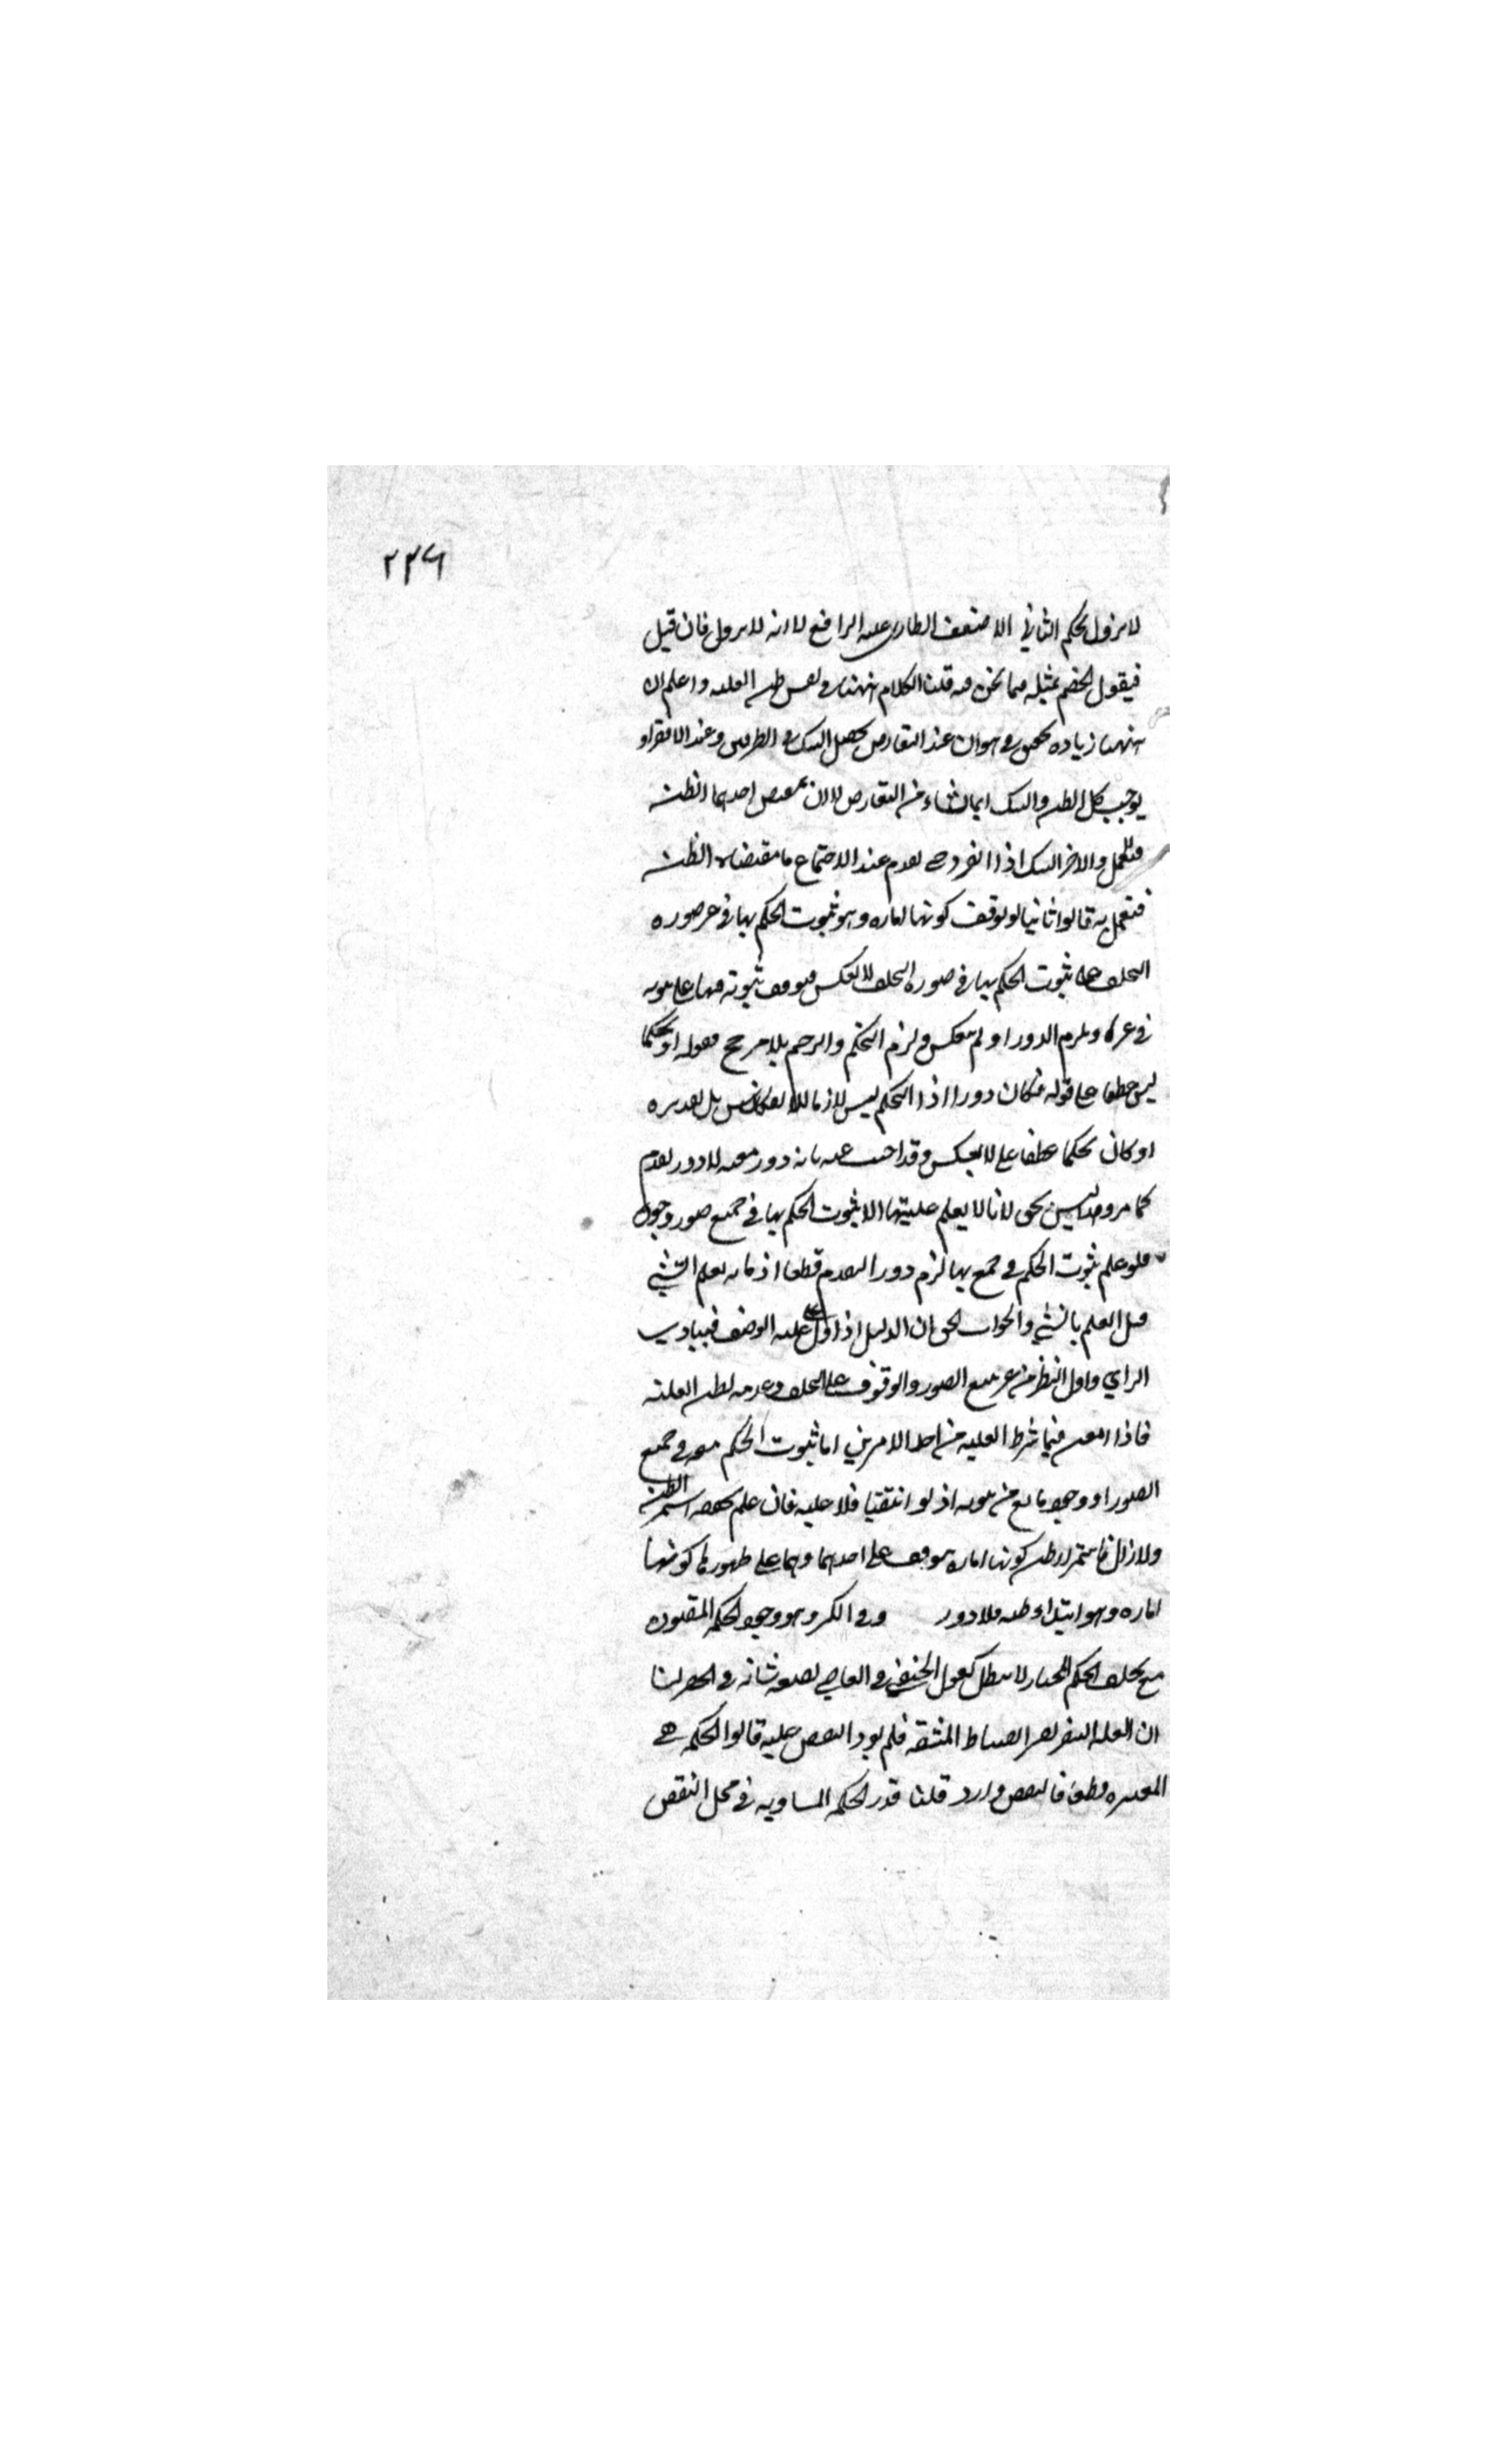 ٢٢٦
لا يزول بحكم الثاني الا ضعف الطارى عليه الرافع لا انه لا يزول فان قيل
فيقول الخصم بمثله فيما نحن فيه قلنا الكلام ههنا في نفس ظن العلية واعلم ان
ههنا زيادة وهو ان عند التعارض يحصل الشك في الطرفين وعند الانفراد
يوجب كل الظن والشك انما نشاء من التعارض لا ان مقتضى احدهما الظن
فيعمل والاخر الشك اذا انفرد حتى يعدم عند الاجتماع ما مقتضاه الظن
فيعمل به قالوا ثانيا لو توقف كونها امارة وهو ثبوت الحكم بها في غير صورة
التخلف على ثبوت الحكم بها في صورة التخلف لانعكس فيوقف ثبوته فيها على ثبوته
في غيرها ويلزم الدور او لم ينعكس ولزم التحكم والترجيح بلا مرجح فقوله او تحكما
ليس عطفا على قوله فكان دورا اذ التحكم ليس لازما للانعكاس بل تقديره
او كان تحكما عطفا على لانعكس وقد اجيب عنه بانه دور معية لا دور تقدم
كما مر وليس بحق لانا لا يعلم عليتها الا بثبوت الحكم بها في جميع صور وجود
فلو علم ثبوت الحكم في جمع بها لزم دور التقدم قطعا اذ ما به يعلم الشي
قبل العلم بالشي والجواب الحق ان الدليل اذا دل على علية الوصف فببادي
الراي واول النظر من غير تتبع الصور والوقوف على التخلف وعدمه يظن العلية
فاذا امعن فيما شرط العلية من احد الامرين اما ثبوت الحكم معه في جميع
الصور او وجود مانع من ثبوته اذ لو انتفيا فلا علية فان علم تحققه استمر الظن
والا زال فاستمرار ظن كونها امارة يتوقف على احدهما وهما على ظهور كونها
امارة وهو ابتداء ظنه فلا دور وفي الكسر وهو وجود الحكمة المقصودة
مع تخلف الحكم المختار لا يبطل كقول الحنفي في العاصي بسفره في الحضر لنا
ان العلة السفر لعسر انضباط المشقة فلم يرد النقض عليه قالوا الحكمة هي
المعتبرة قطعا فالنقض وارد قلنا قدر الحكمة المساوية في محل النقض